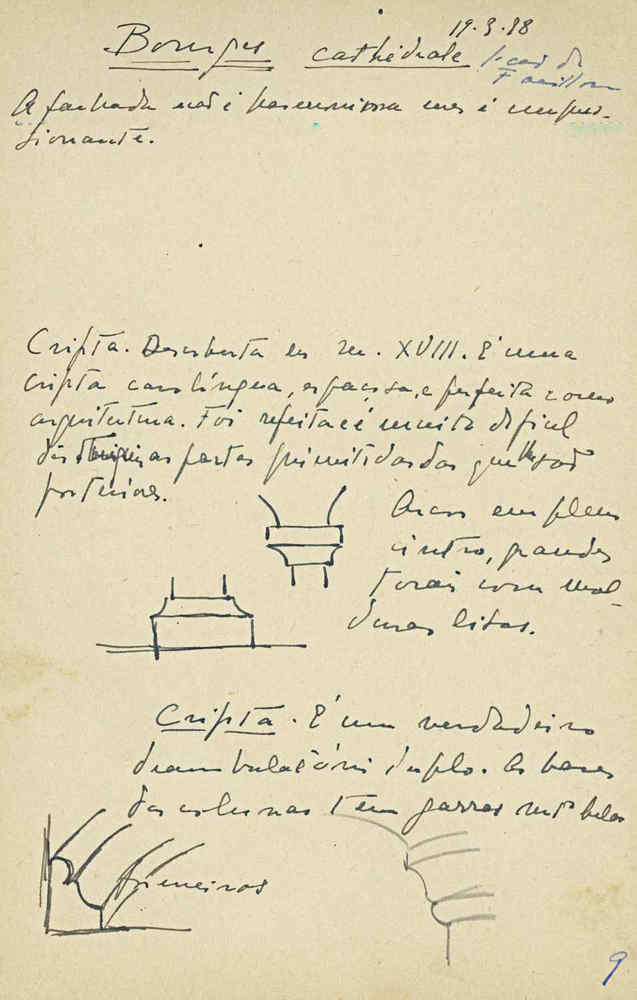 19-3-88
Bourges cathédrale
A fachada não é harmoniosa mas é impres-
sionante.
Cripta. Descoberta no séc. XVIII. É uma
cripta carolíngea, espaçosa, e perfeita como
arquitectura. Foi refeita e é muito dificil
distinguir as partes primitivas das que lhe são
posteriores.
Arcos em pleno
cintro, grandes
torais com mol-
duras lisas.
Cripta. É um verdadeiro
deambulatório duplo. As bases
das colunas têm garras mtº belas
primeiros
9